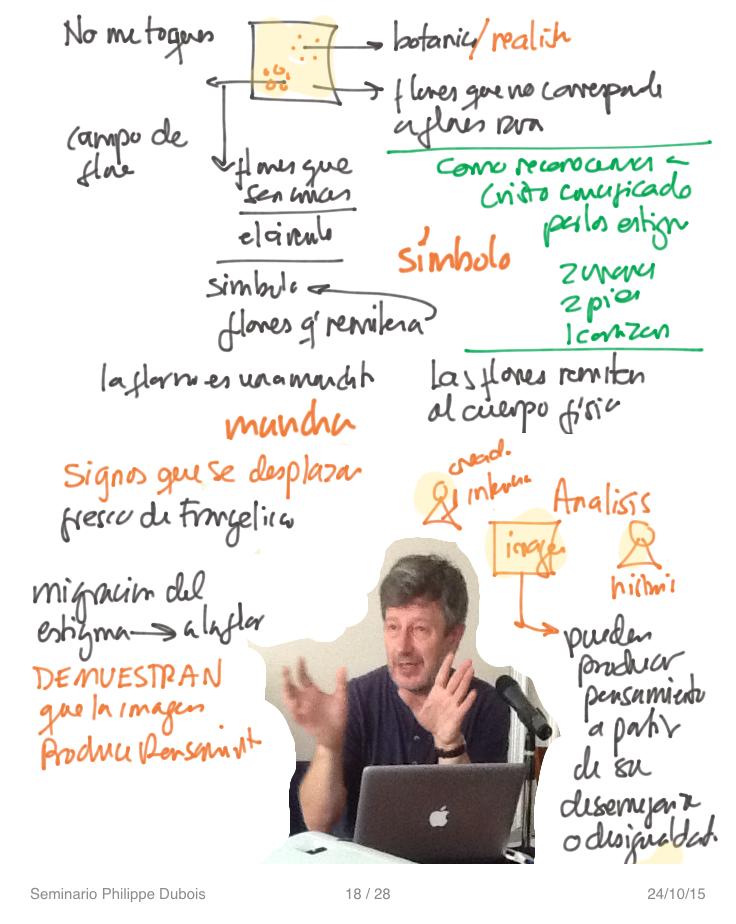 No me toques
botanic/realish
flores que no corresponde
a flores
campo de
flore
flores que
son
el círculo
símbolo
flores q' remitera
como reconocemos
Cristo crucificado
por los estigm
2 manos
2 pies
1 corazon
Símbolo
la flor no es una mancht
mancha
Las flores remiten
al cuerpo físic
Signos que se desplazan
fresco de Frangelico
cread.
Analisis
image
migracion del
estigma → a la flor
DEMUESTRAN
que la imagen
Produce Pensamint
pueden
producir
pensamiento
a partir
de su
desemejanza
o desigualdat.
Seminario Philippe Dubois
18 / 28
24/10/15